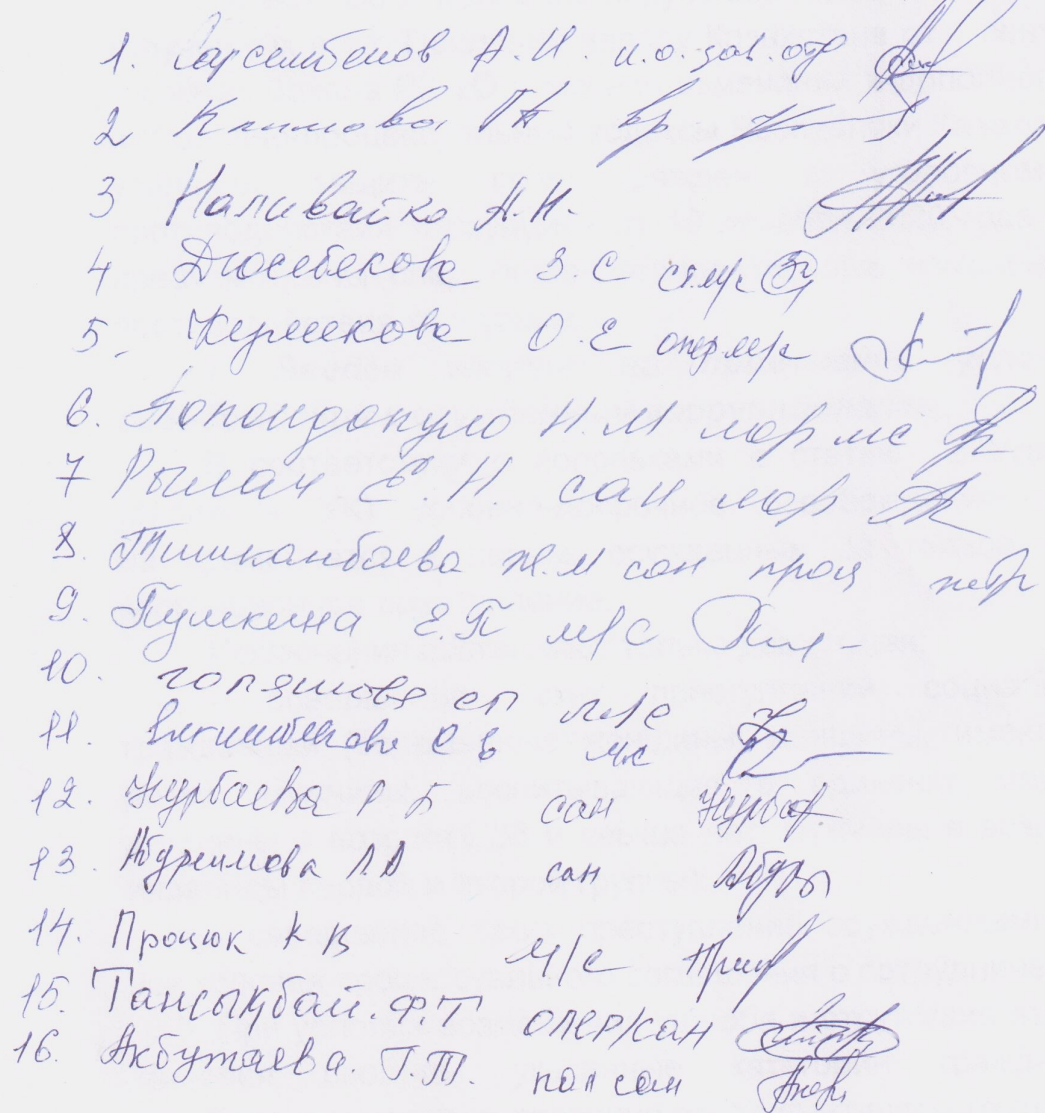 1. Сарсембенов А.И. и.о. зав. отд
2 Климова ГА вр
3 Наливайко А.Н.
4 Дюсебекова З С ст.м/с
5. Жумекова О.Е опер м/с
6. Попондопуло Н.М мар мс
7 Рылач Е.Н сан мар
8. Тишканбаева Ж.М сан проц
9. Пушкина Е.П м/с
10. СП м/с
11. С В мс
12. Нурбаева Р Б сан Нурбаг
13. Абдреимова ЛА сан Абдр
14. Процюк К В м/с
15. Таңсықбай. Ф.Т опер/сан
16. Акбутаева. Г.Т. пол сан